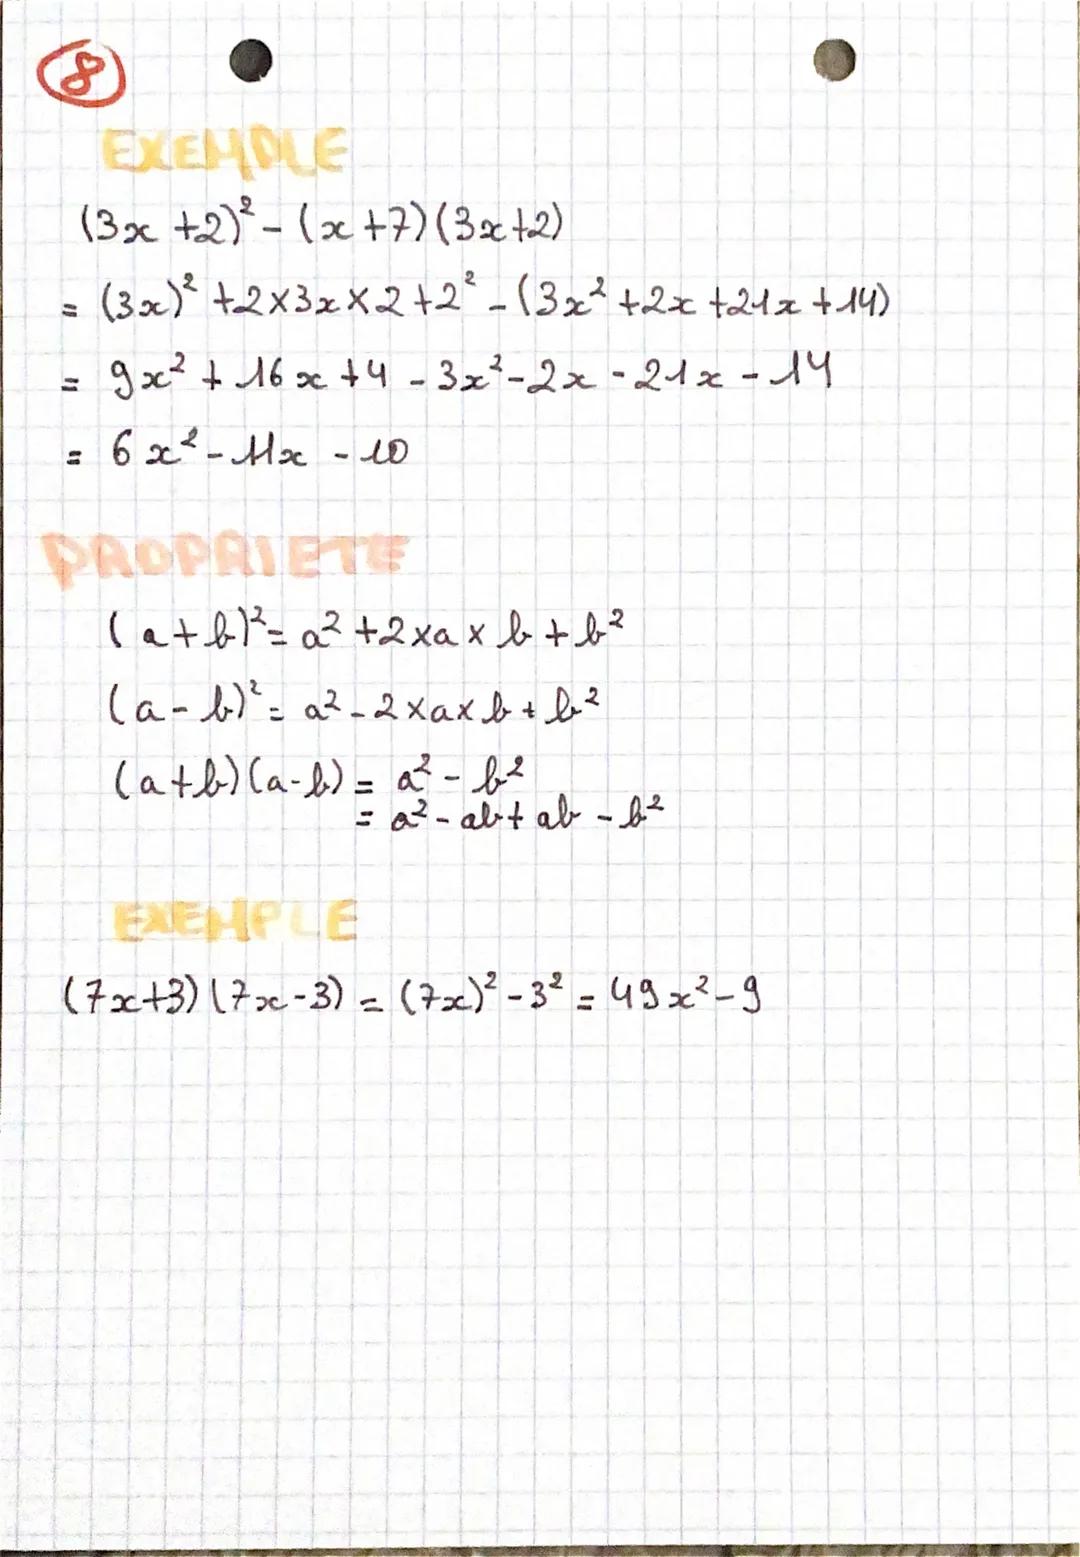 8
EXEMPLE
(3x +2)² - (x +7)(3x+2)
= (3x)² +2×3x×2+2² - (3x² +2x +21x +14)
= 9x² + 16x +4 - 3x² - 2x - 21x - 14
= 6x² - 11x - 10
PROPRIETE
(a+b)² = a² +2×a×b + b²
(a-b)² = a² - 2×a×b + b²
(a+b)(a-b) = a² - b²
= a² - ab + ab - b²
EXEMPLE
(7x+3)(7x-3) = (7x)² - 3² = 49x² - 9